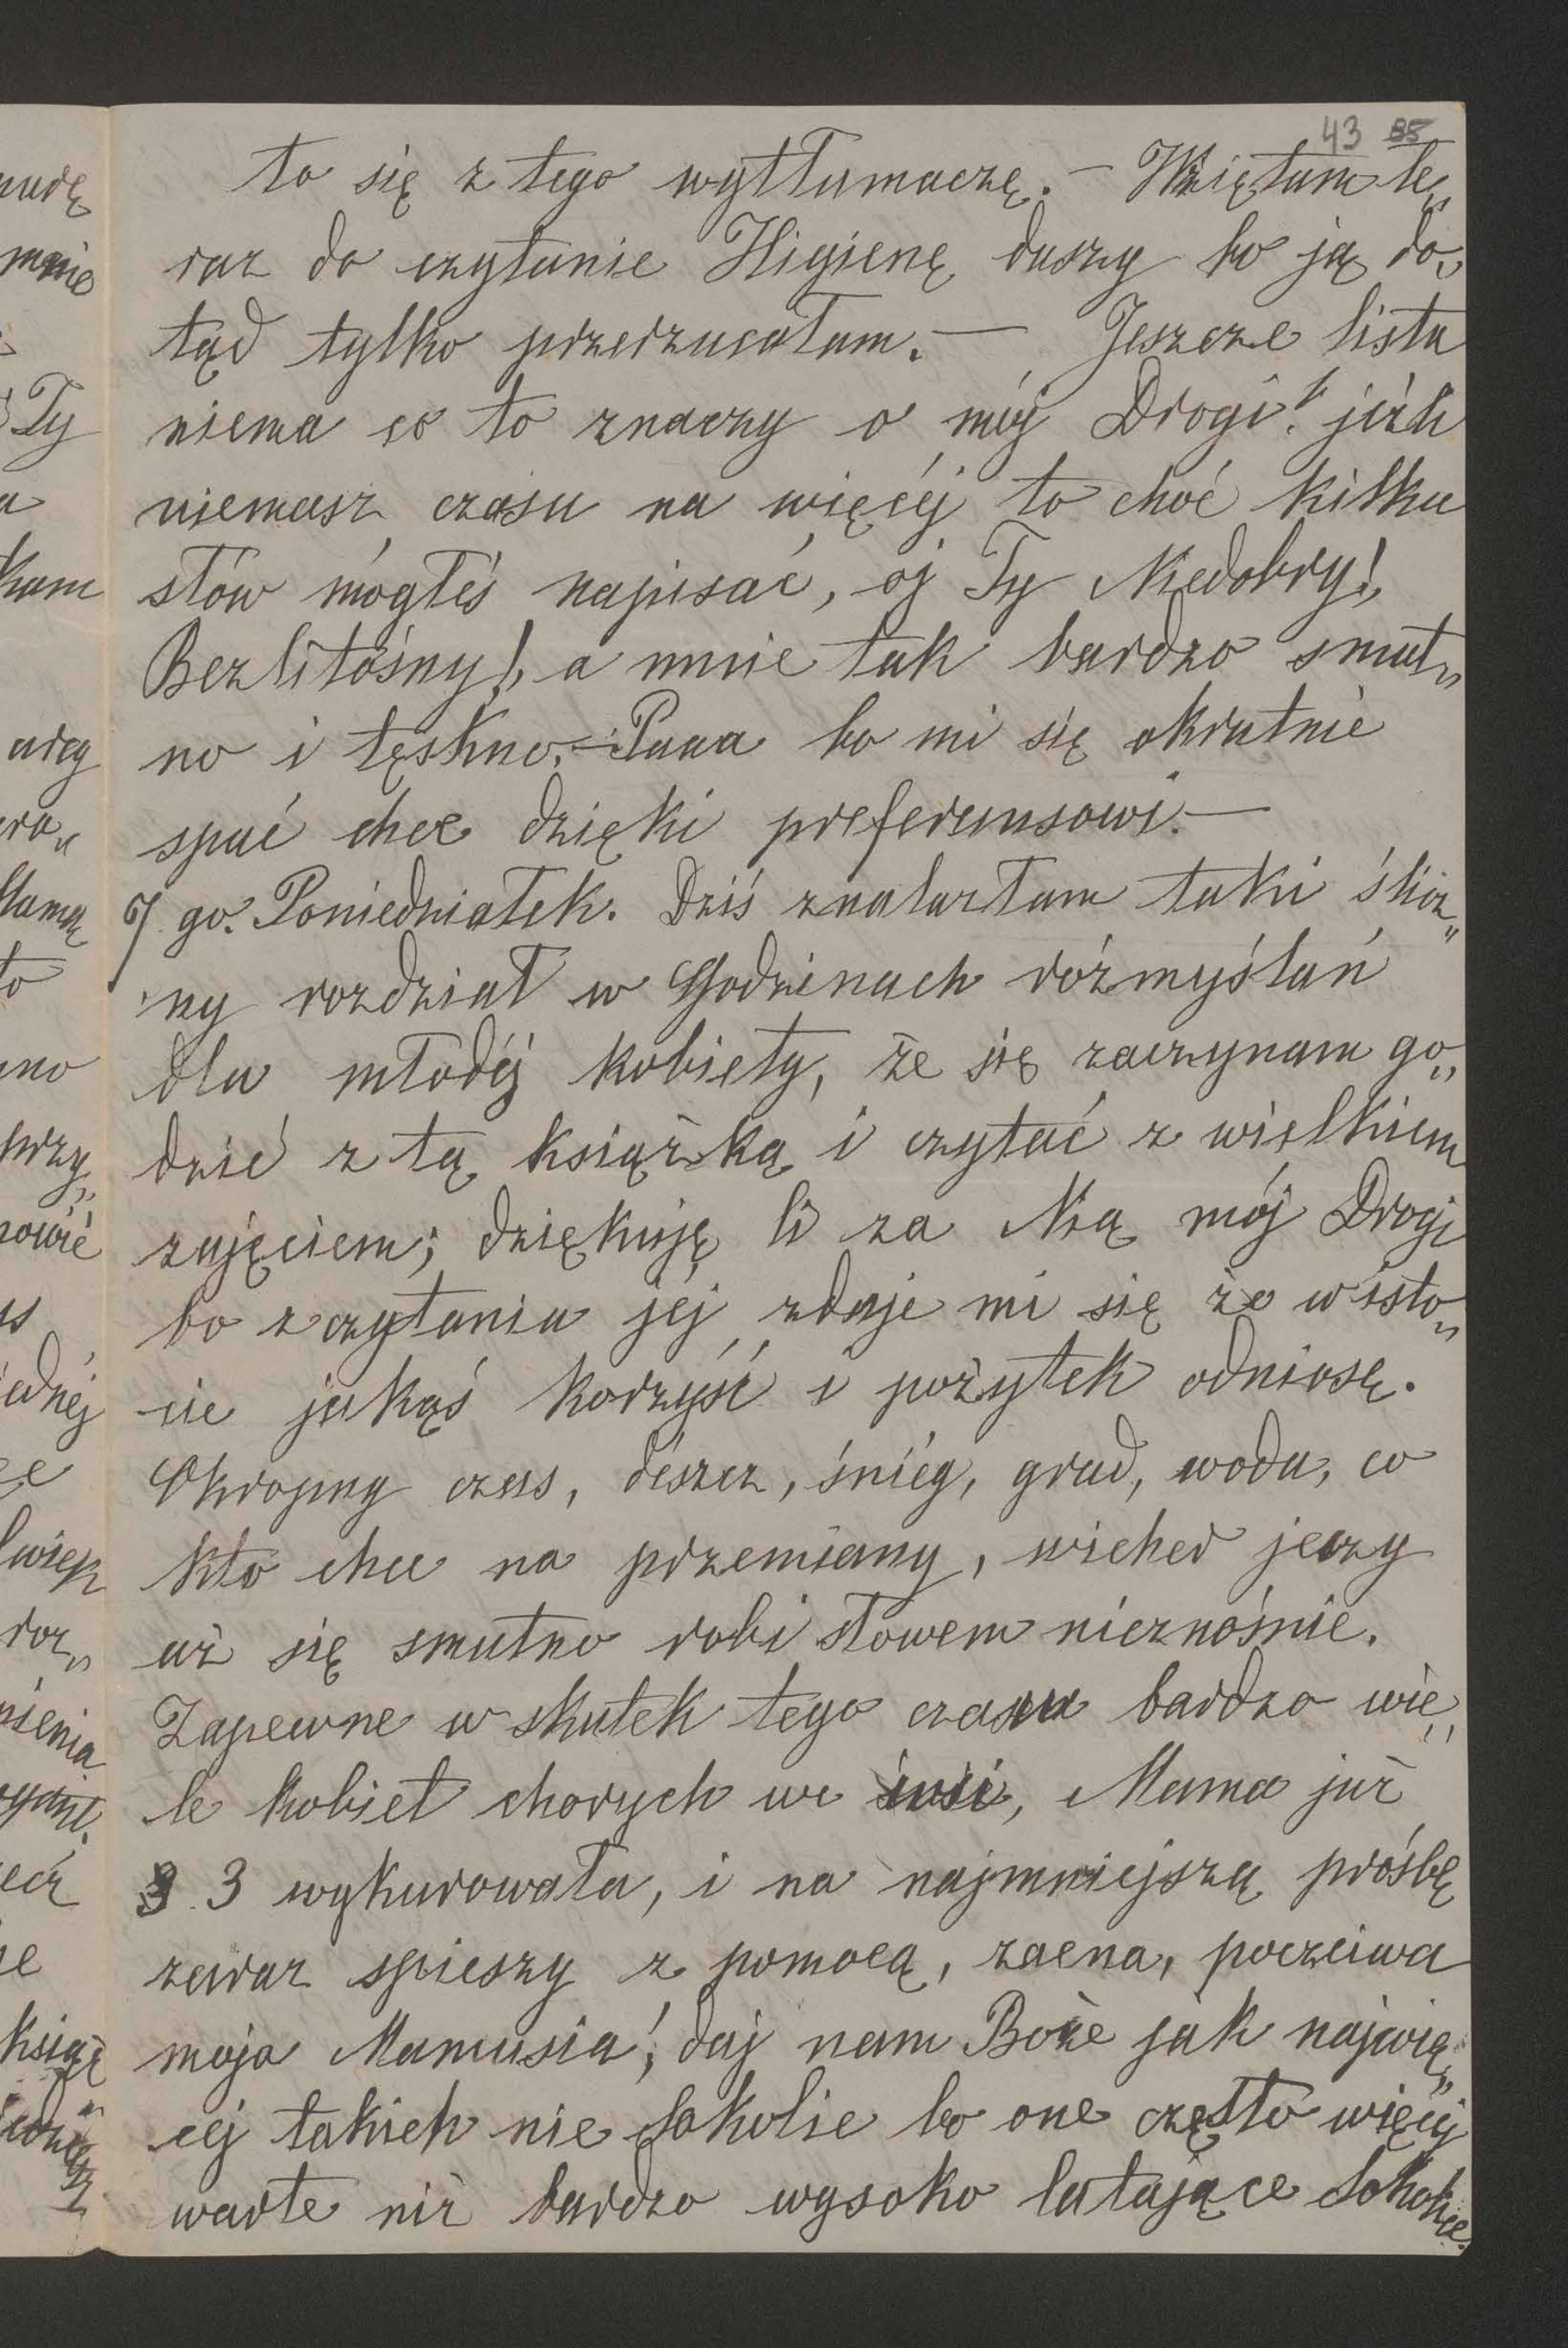 43 85
to się z tego wytłumaczę. — Wzięłam te„
raz do czytanie Higienę duszy bo ją do„
tąd tylko przerzucałam. — Jeszcze listu
niema co to znaczy o mój Drogi! jeżli
niemasz czasu na więcéj to choć kilku
słów mógłeś napisać, oj Ty Niedobry!,
Bezlitośny!, a mnie tak bardzo smut„
no i tęskno. — Paaa bo mi się okrutnie
spać chce dzięki preferansowi. —
7 go. Poniedziałek. Dziś znalazłam taki ślicz„
ny rozdział w Godzinach rozmyślań
dla młodéj kobiety, że się zaczynam go„
dzić z tą książką i czytać z wielkiem
zajęciem; dziękuję Ci za Nią mój Drogi
bo z czytania jéj zdaje mi się że w isto„
cie jakąś korzyść i pożytek odniosę.
Okropny czas, dészcz, śniég, grad, woda, co
kto chce na przemiany, wicher jęczy
aż się smutno robi słowem nieznośnie.
Zapewne w skutek tego czasu bardzo wie„
le kobiet chorych we wsi, Mama już
3 wykurowała, i na najmniejszą prośbę
zaraz spieszy z pomocą, zacna, poczciwa
moja Mamusia!, daj nam Boże jak najwię„
cej takich nie Sokolic bo one często więcéj
warte niż bardzo wysoko latające Sokolice.